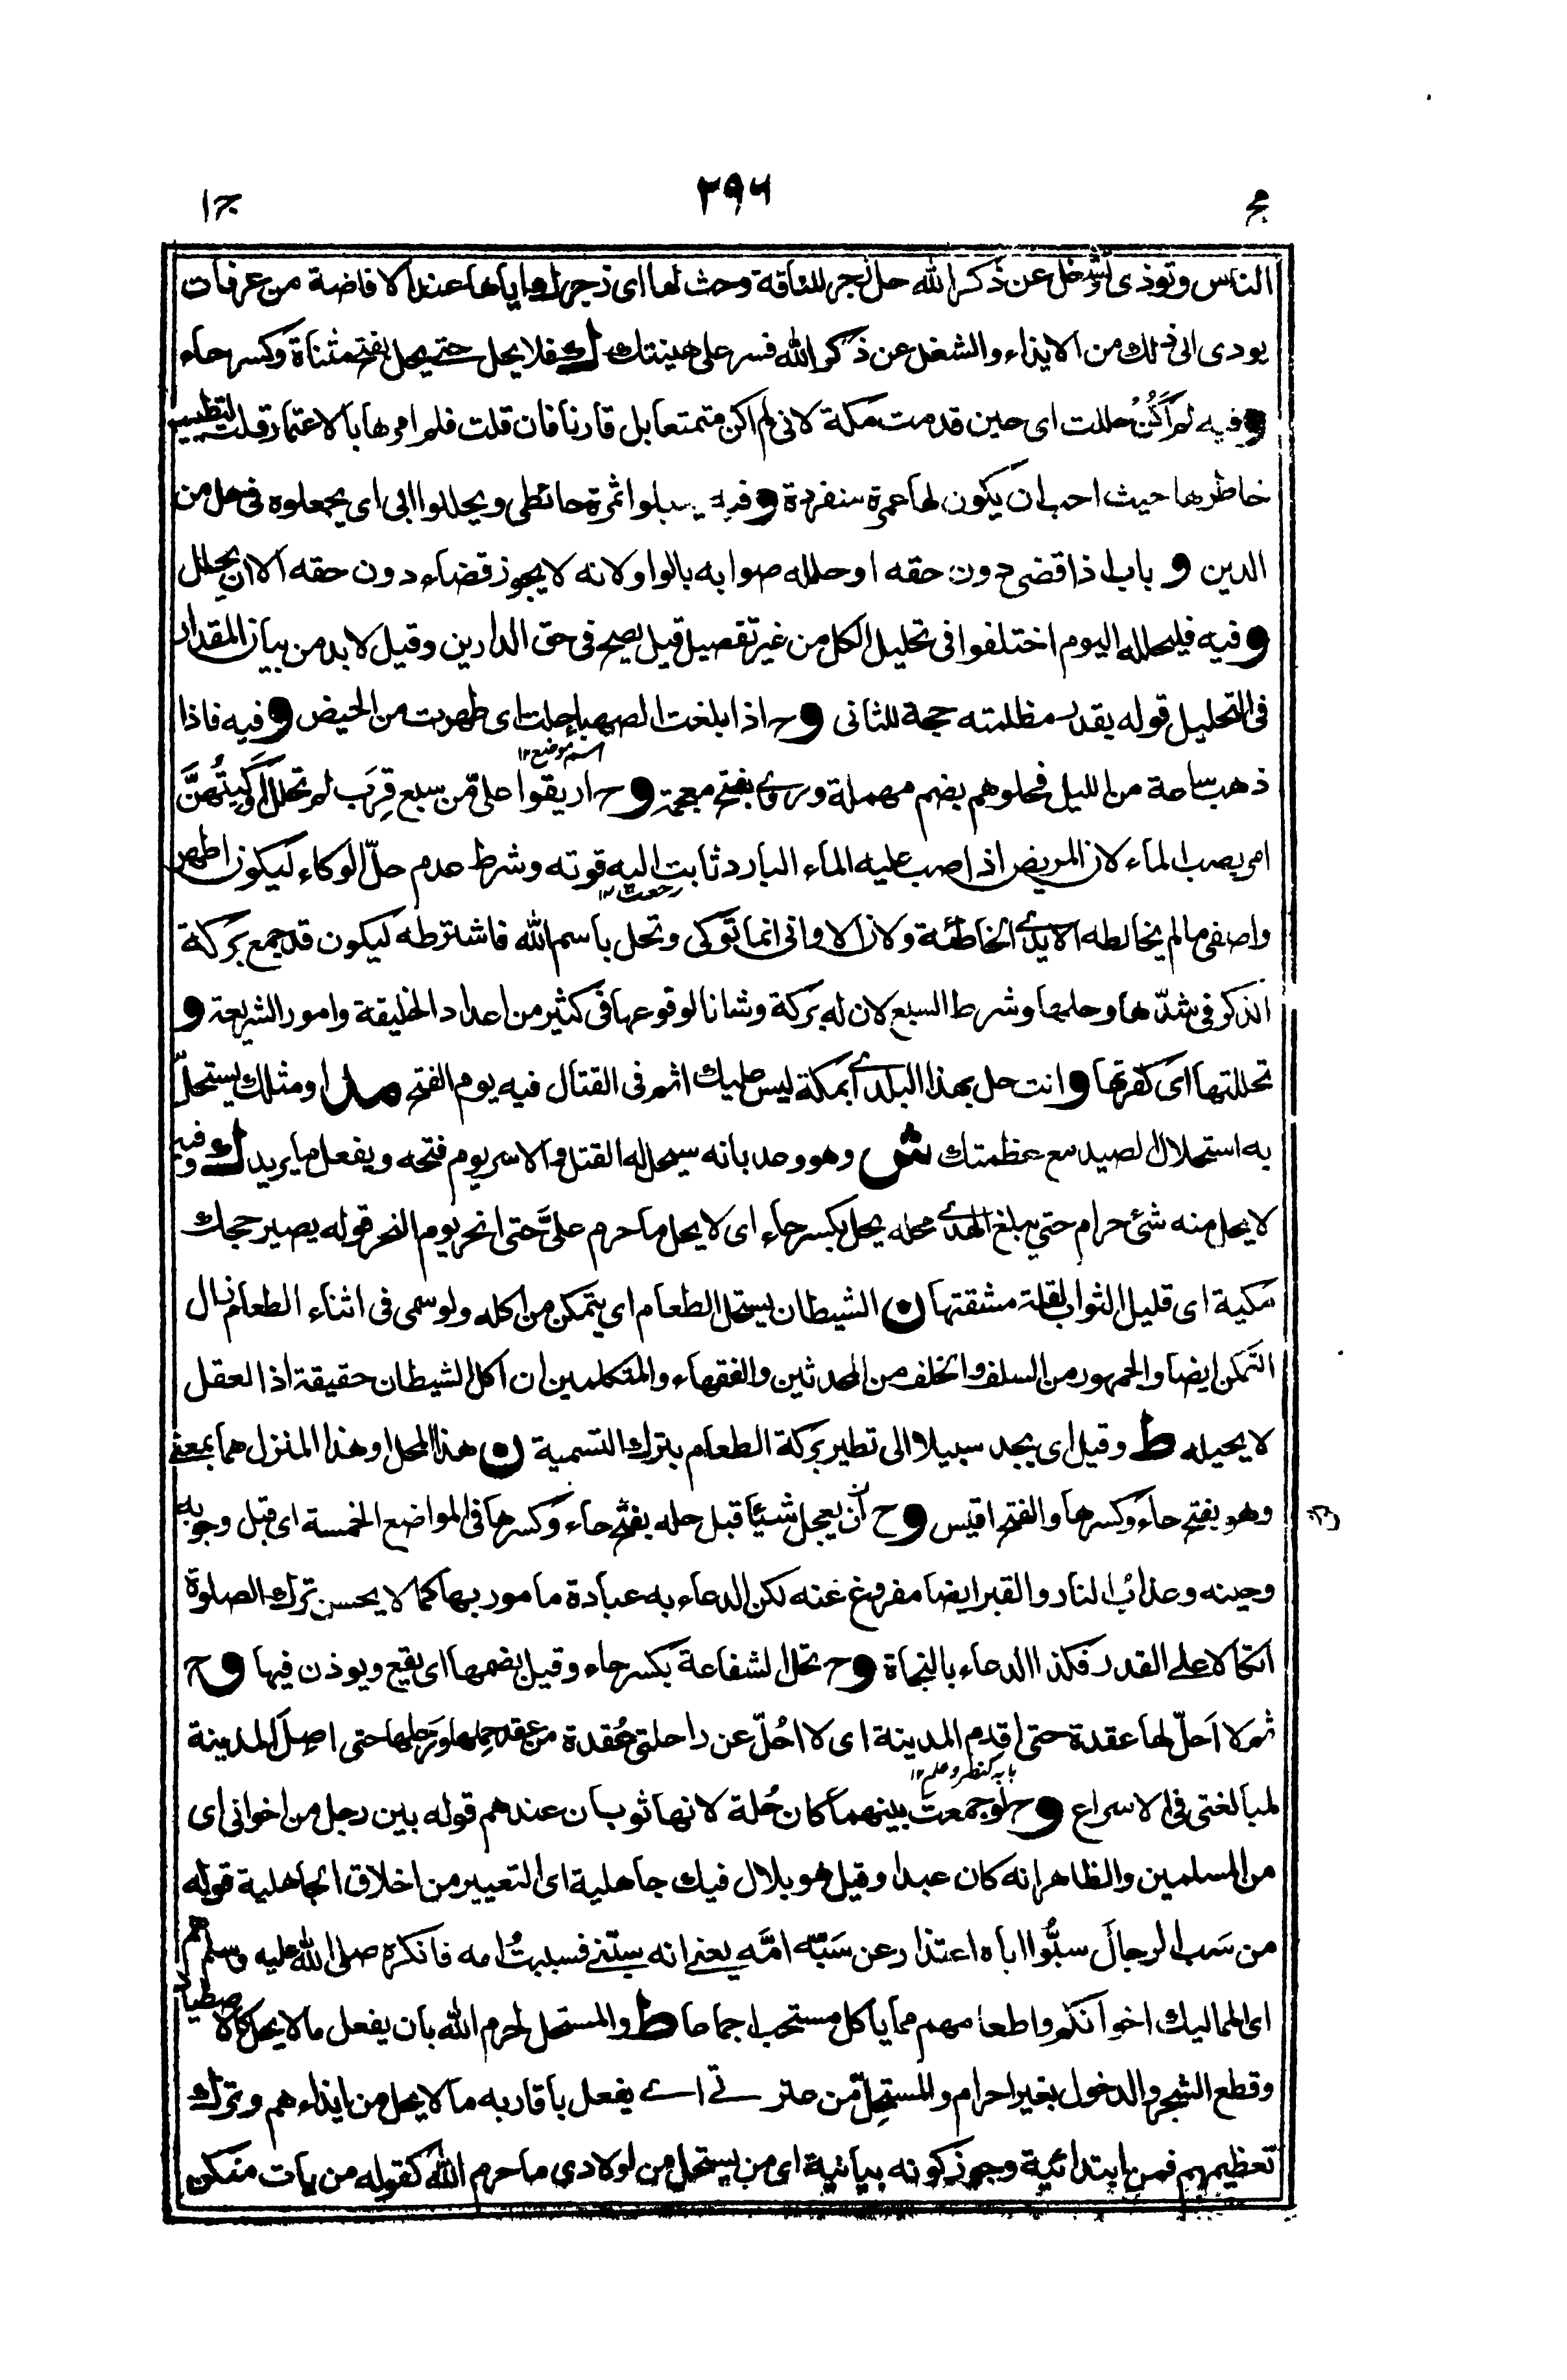 مج ٢٩٦ ج١
الناس وتوذى وتشغل عن ذكر الله حل زجر للناقة وحث لها اى زجرك اياها عند الافاضة من عرفات
يودى الى ذلك من الايذاء والشغل عن ذكر الله فسر على هينتك ك فلا يحل حتى يحل بفتح مثناة وكسر حاء
و فيه لم أكن حللت اى حين قدمت مكة لانى لم اكن متمتعا بل قارنا فان قلت فلم امرها بالاعتمار قلت لتطييب
خاطرها حيث احب ان يكون لها عمرة منفردة و فيه يقبلوا ثمرة حائطى ويحللوا ابى اى يجعلوه فى حل من
الدين و باب اذا قضى دون حقه او حلله صوابه بالواو لانه لا يجوز قضاء دون حقه الا ان يحلل
و فيه فليحلله اليوم اختلفوا فى تحليل الكل من غير تفصيل قيل يصح فى حق الدارين وقيل لابد من بيان المقدار
فى التحليل قوله يقدر مظلمته حجة للثانى و ح اذا بلغت الصهباء حلت اى طهرت من الحيض و فيه فاذا
اسم موضع١٢
ذهب ساعة من الليل فحلوهم بضم مهملة وروى بفتح معجمة و ح اريقوا علىّ من سبع قِرَب لم تحلل اَوكِيتُهُنَّ
امر بصب الماء لان المريض اذا صب عليه الماء البارد ثابت اليه قوته وشرط عدم حلّ الوكاء ليكون اطهر
رجعت١٢
واصفى مالم يخالطه الايدى الخاطئة ولان الاوانى انما توكى وتحل باسم الله فاشترطه ليكون قد جمع بركة
الذكر فى شدّها وحلها وشرط السبع لان له بركة وشانا لوقوعها فى كثير من اعداد الخليقة وامور الشريعة و
تحللتها اى كفرتها و انت حل بهذا البلد اى بمكة ليس عليك اثم فى القتال فيه يوم الفتح مد او مثلك يستحلّ
به استحلال الصيد مع عظمتك ش وهو وعد بانه سيحل له القتل والاسر يوم فتحه ويفعل ما يريد ك وفيه
لا يحل منه شئ حرام حتى يبلغ الهدى محله يحل بكسر حاء اى لا يحل ما حرم علىَّ حتى انحر يوم النحر قوله يصير حجك
مكية اى قليل الثواب لقلة مشقتها ن الشيطان يستحل الطعام اى يتمكن من اكله ولو سمى فى اثناء الطعام زال
التمكن ايضا والجمهور من السلف والخلف من المحدثين والفقهاء والمتكلمين ان اكل الشيطان حقيقة اذ العقل
لا يحيله ط وقيل اى يجد سبيلا الى تطير بركة الطعام بترك التسمية ن هذا المحل او هذا المنزل هما بمعنى
وهو بفتح حاء وكسرها والفتح اقيس و ح أن يعجل شيئا قبل حله بفتح حاء وكسرها فى المواضع الخمسة اى قبل وجوبه
وحينه وعذاب النار والقبر ايضا مفروغ عنه لكن الدعاء به عبادة مامور بها كما لا يحسن ترك الصلوة
اتكالا على القدر فكذا الدعاء بالنجاة و ح تحل الشفاعة بكسر حاء وقيل بضمها اى يقع ويوذن فيها و ح
ثم لا اَحلّ لها عقدة حتى اقدم المدينة اى لا احُلّ عن راحلتى عُقدة من عقد حِملها ورحلها حتى اصل المدينة
لمبالغتى فى الاسراع و ح لو جمعت بينهما كان حُلة لانها ثوبان عندهم قوله بين رجل من اخوانى اى
من المسلمين والظاهر انه كان عبدا وقيل هو بلال فيك جاهلية اى التعيير من اخلاق الجاهلية قوله
من سَب الرجالَ سبُّوا اباه اعتذار عن سَبّه امّه يعنى انه سبّنى فسببتُ امه فانكره صلى الله عليه وسلم هم
اى المماليك اخوانكم واطعامهم مما ياكل مستحب اجماعا ط والمستحل لحرم الله بان يفعل مالا يحل كالاصطياد
وقطع الشجر والدخول بغير احرام والمستحِلّ من عترتى اى يفعل باقاربه مالا يحل من ايذاءهم وترك
تعظيمهم فمن ابتدائية وجوز كونه بيانية اى من يستحل من اولادى ما حرم الله كقوله من يات منكن